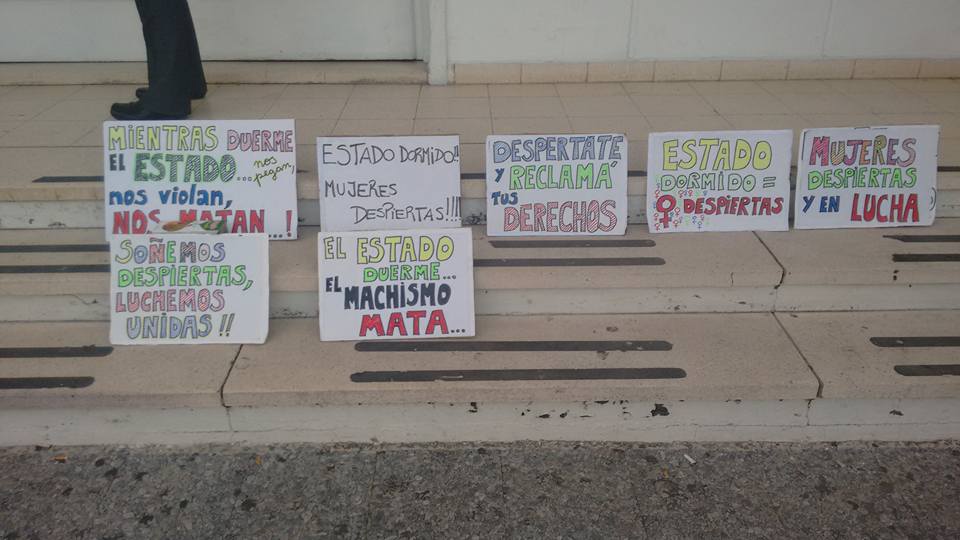 MIENTRAS DUERME
EL ESTADO... nos pegan,
nos violan,
NOS MATAN...!
ESTADO DORMIDO!!
MUJERES
DESPIERTAS!!!!
DESPERTATE
Y RECLAMÁ
TUS
DERECHOS
ESTADO
DORMIDO =
DESPIERTAS
MUJERES
DESPIERTAS
Y EN LUCHA
SOÑEMOS
DESPIERTAS,
LUCHEMOS
UNIDAS!!
EL ESTADO
DUERME...
EL
MACHISMO
MATA...